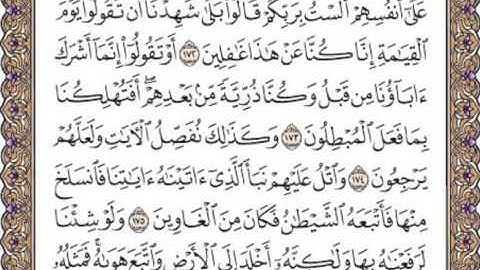 عَلَىٰٓ أَنفُسِهِمْ أَلَسْتُ بِرَبِّكُمْ قَالُوا۟ بَلَىٰ شَهِدْنَآ أَن تَقُولُوا۟ يَوْمَ
ٱلْقِيَٰمَةِ إِنَّا كُنَّا عَنْ هَٰذَا غَٰفِلِينَ ١٧٢ أَوْ تَقُولُوٓا۟ إِنَّمَآ أَشْرَكَ
ءَابَآؤُنَا مِن قَبْلُ وَكُنَّا ذُرِّيَّةً مِّنۢ بَعْدِهِمْ ۖ أَفَتُهْلِكُنَا
بِمَا فَعَلَ ٱلْمُبْطِلُونَ ١٧٣ وَكَذَٰلِكَ نُفَصِّلُ ٱلْءَايَٰتِ وَلَعَلَّهُمْ
يَرْجِعُونَ ١٧٤ وَٱتْلُ عَلَيْهِمْ نَبَأَ ٱلَّذِىٓ ءَاتَيْنَٰهُ ءَايَٰتِنَا فَٱنسَلَخَ
مِنْهَا فَأَتْبَعَهُ ٱلشَّيْطَٰنُ فَكَانَ مِنَ ٱلْغَاوِينَ ١٧٥ وَلَوْ شِئْنَا
لَرَفَعْنَٰهُ بِهَا وَلَٰكِنَّهُۥٓ أَخْلَدَ إِلَى ٱلْأَرْضِ وَٱتَّبَعَ هَوَىٰهُ ۚ فَمَثَلُهُۥ